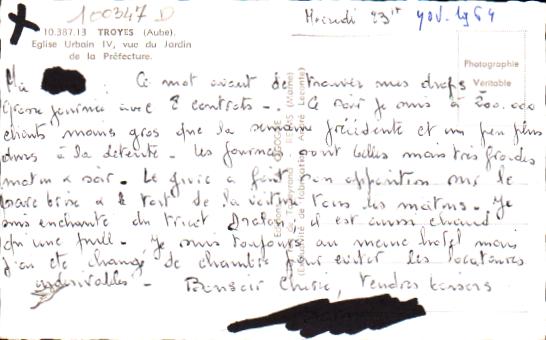 100347 D
Mercredi 23 nov. 1964
10.387.13 TROYES (Aube).
Eglise Urbain IV, vue du Jardin
de la Préfecture.
Photographie
Véritable
Ma : Ce mot avant de trouver mes draps
Grosse journée avec 2 contrats - Ce soir je suis à 200.000
clients moins gros que la semaine précédente et un peu plus
durs à la détente - Les journées sont belles mais très froides
matin & soir - Le givre a fait son apparition sur le
pare brise & le toit de la voiture tous les matins. Je
suis enchanté du tricot il est aussi chaud
qu'une pull - Je suis toujours au meme hotel mais
j'ai été changé de chambre pour eviter les locataires
indésirables - Bonsoir Cherie, tendres baisers